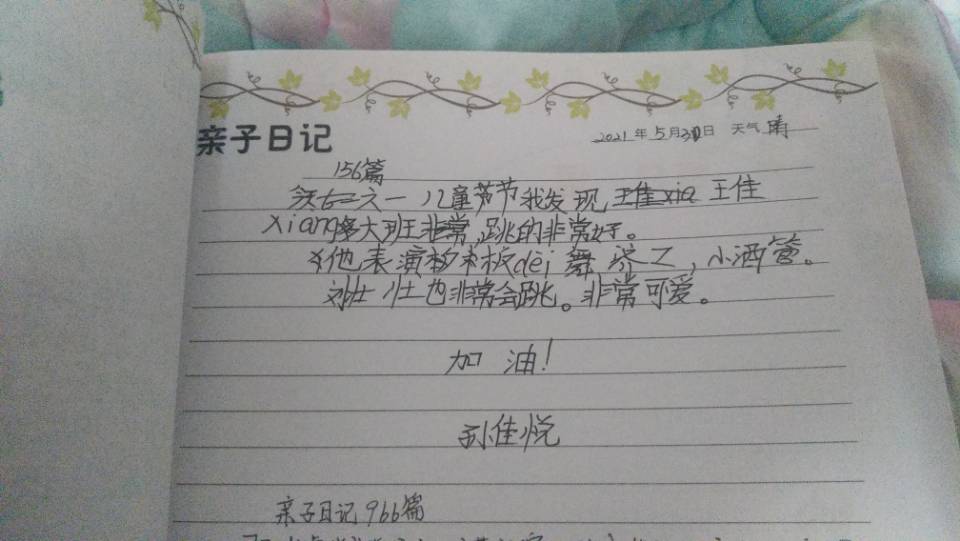 亲子日记 2021年5月30日 天气 晴
156篇
六一儿童节节我发现 王佳xia 王佳
xiang 大班非常,跳的非常好。
他表演 板dei舞,济工,小酒管。
刘壮壮也非常会跳。非常可爱。
加油!
孙佳悦
亲子日记966篇